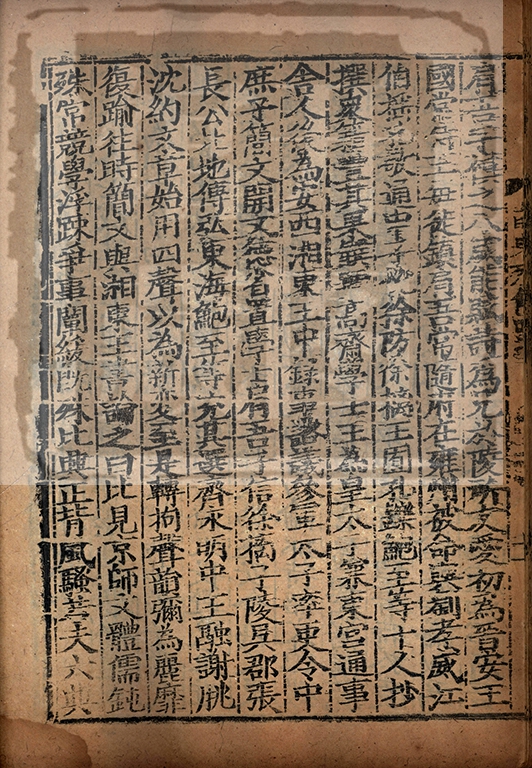 肩吾字慎之八歲能賦詩為兄於陵所友愛初為晉安王
國常侍王每徙鎮肩吾常隨府在雍州被命與劉孝威江
伯搖孔敬通申子悅徐防徐摛王囿孔鑠鮑至等十人抄
撰衆籍豐其果饌號高齋學士王為皇太子兼東宮通事
舍人後為安西湘東王中錄事諮議參軍太子率更令中
庶子簡文開文德省置學士肩吾子信徐摛子陵吳郡張
長公北地傅弘東海鮑至等充其選齊永明中王融謝朓
沈約文章始用四聲以為新變至是轉拘聲韻彌為麗靡
復踰往時簡文與湘東王書論之曰比見京師文體儒鈍
殊常競學浮疎爭事闡緩既殊比興正背風騷若夫六典